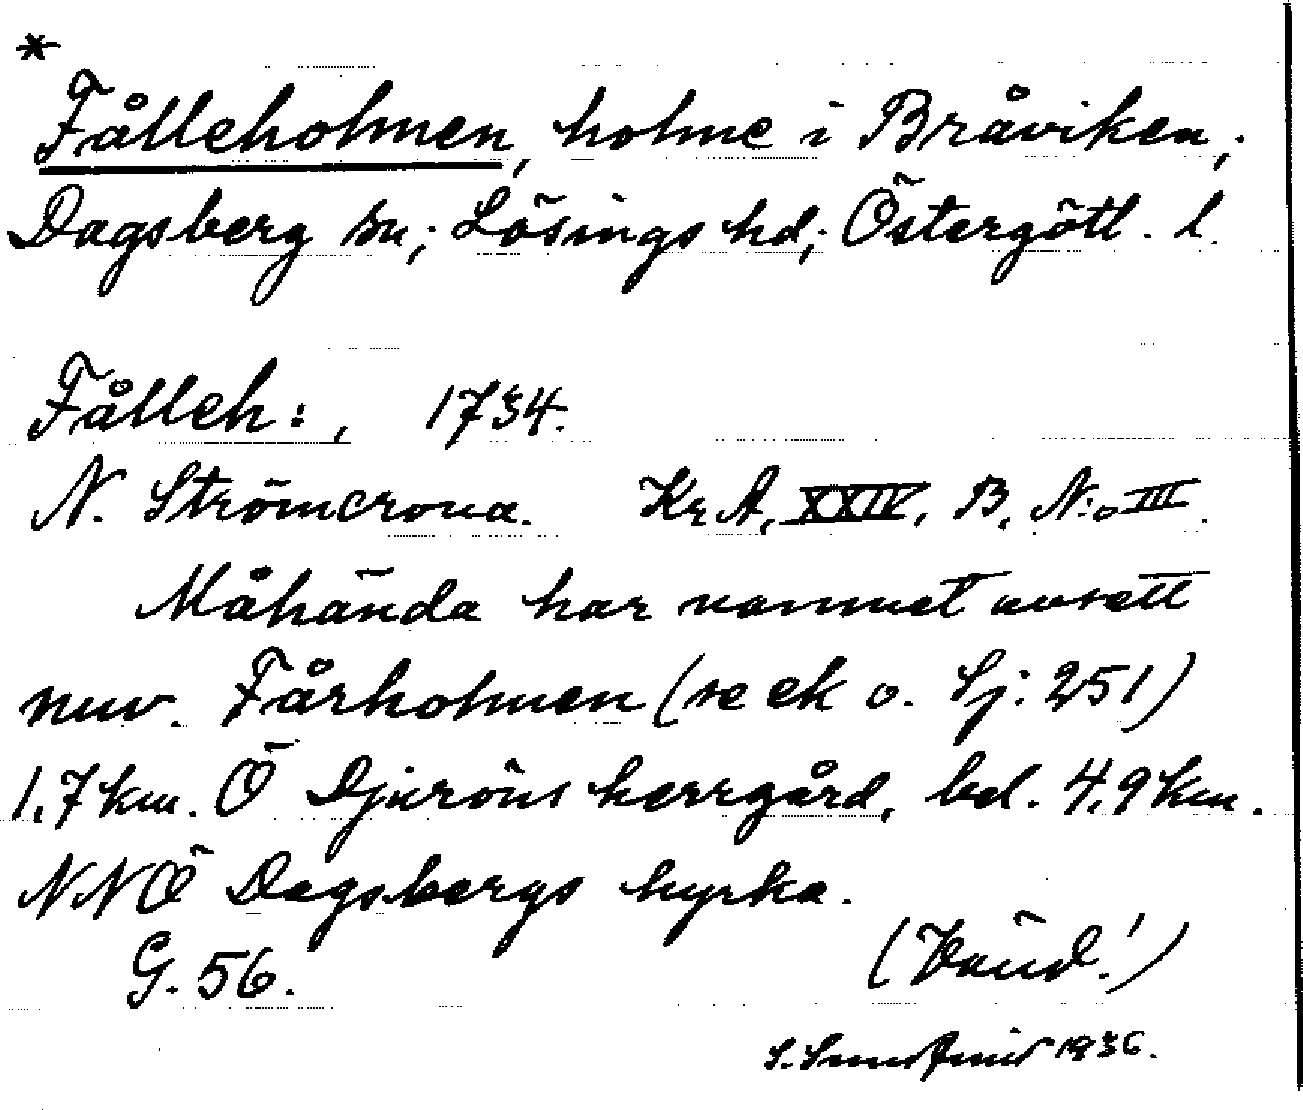 *
Fålleholmen, holme i Bråviken,
Dagsberg sn; Lösings hd; Östergötl. l.
Fålleh:, 1734.
N. Strömcrona. Kr A, XXIV, B, N:o III.
Måhända har namnet avsett
nuv. Fårholmen (se ek o. Sj: 251)
1,7 km. Ö Djuröns herrgård, bel. 4,9 km.
NNÖ Dagsbergs kyrka.
G. 56.
(Vänd!)
1936.